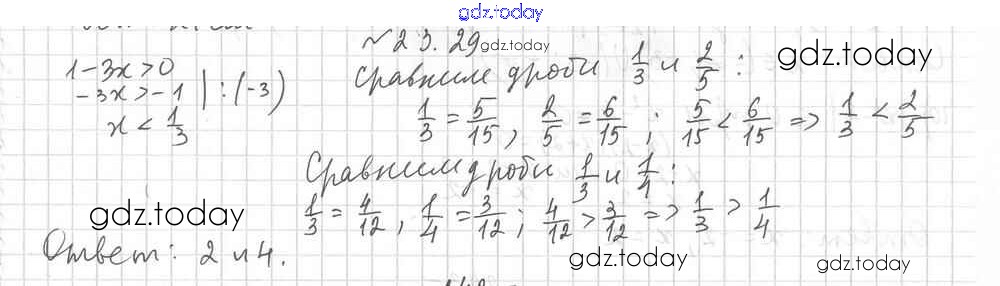 gdz.today
№ 23.29 gdz.today
1 - 3x > 0
-3x > -1 | : (-3)
x < 1/3
Сравним дроби 1/3 и 2/5 : gdz.today
1/3 = 5/15, 2/5 = 6/15 ; 5/15 < 6/15 => 1/3 < 2/5
Сравним дроби 1/3 и 1/4 :
1/3 = 4/12, 1/4 = 3/12 ; 4/12 > 3/12 => 1/3 > 1/4
gdz.today
Ответ: 2 и 4.
gdz.today
gdz.today